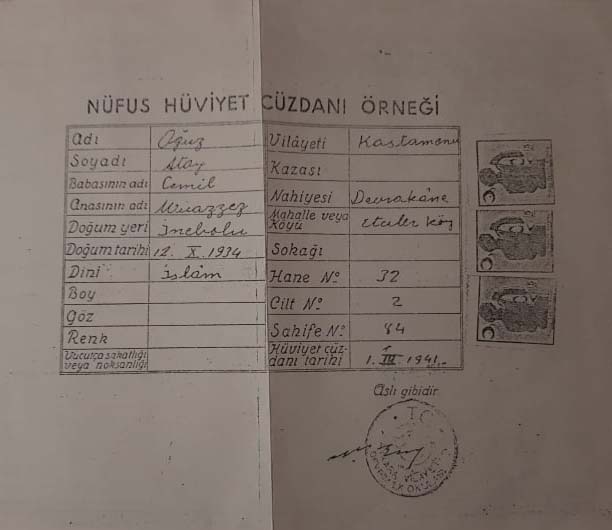 NÜFUS HÜVİYET CÜZDANI ÖRNEĞİ
Adı Oğuz
Soyadı Atay
Babasının adı Cemil
Anasının adı Muazzez
Doğum yeri İnebolu
Doğum tarihi 12. X. 1934
Dini İslâm
Boy
Göz
Renk
Vucutça sakatlığı veya noksanlığı
Vilâyeti Kastamonu
Kazası
Nahiyesi Devrakâne
Mahalle veya Köyü
Sokağı
Hane No 32
Cilt No 2
Sahife No 84
Hüviyet cüzdanı tarihi 1. IV. 1941.
Aslı gibidir
T.C.